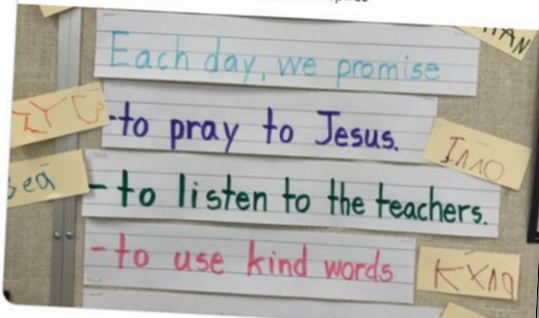 Each day, we promise
-to pray to Jesus.
-to listen to the teachers.
-to use kind words